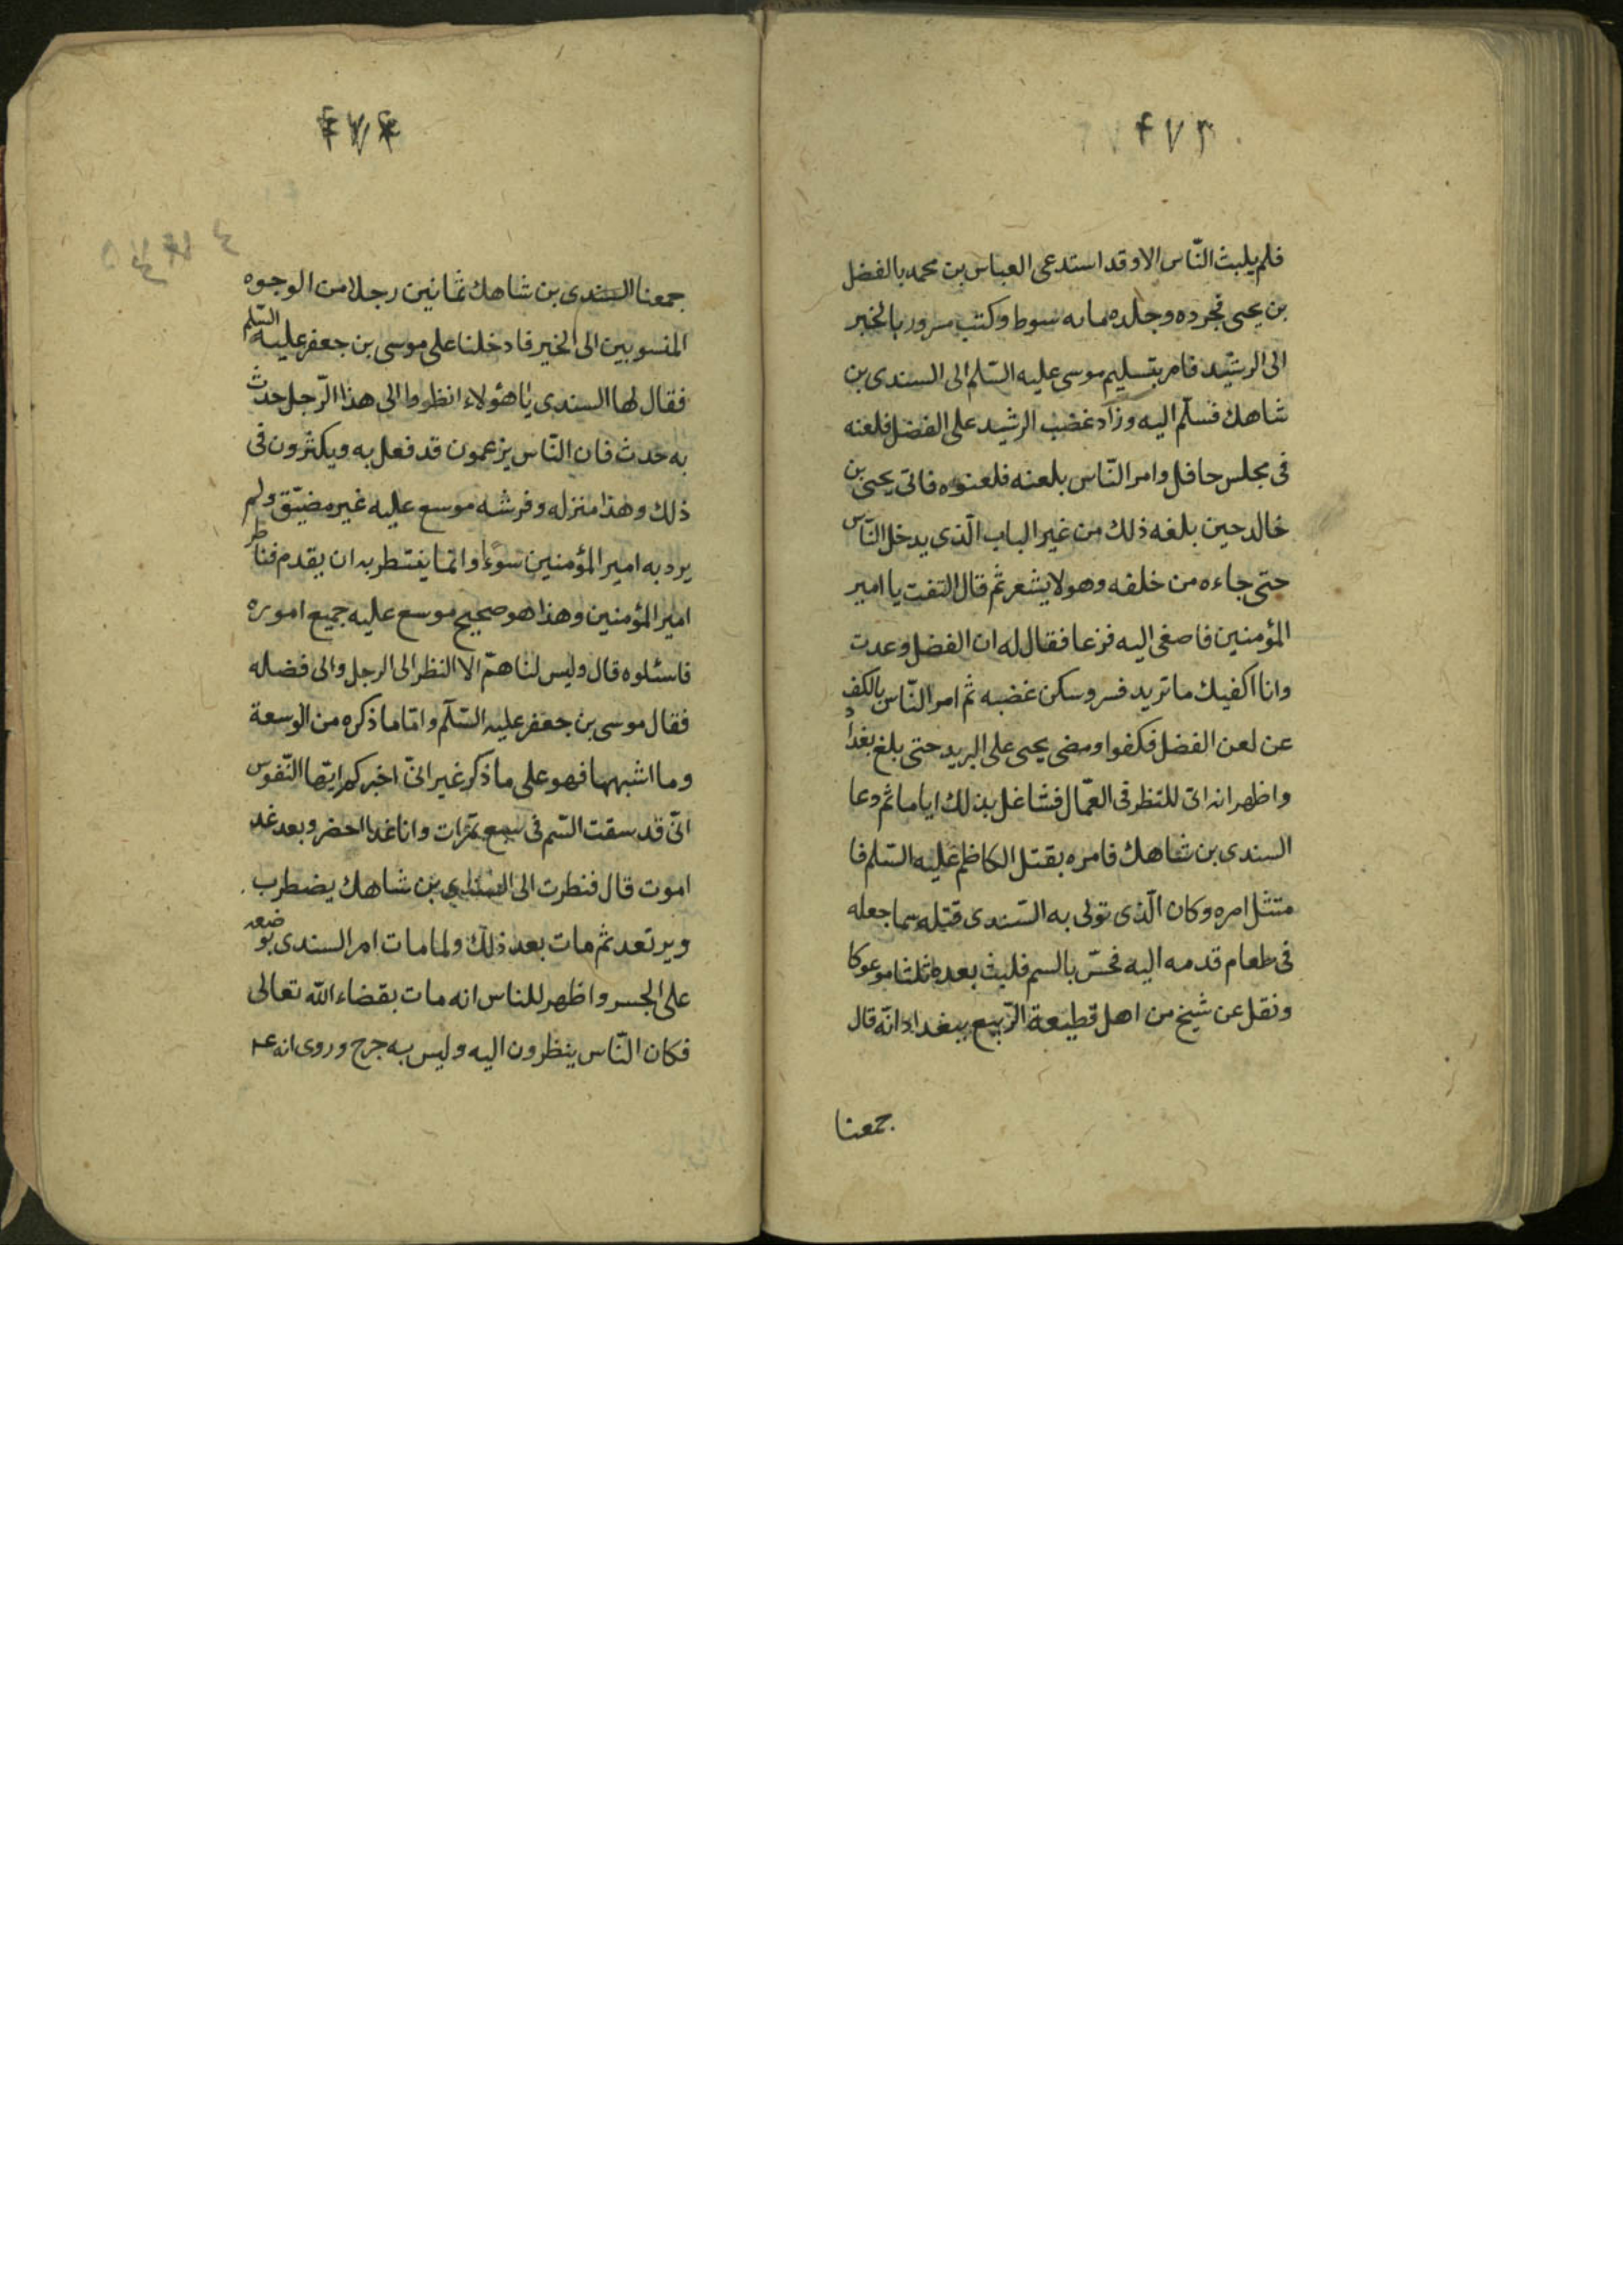 ۴۷۳
فلم يلبث النّاس الا وقد استدعى العباس بن محمد بالفضل
بن يحيى فجرده وجلده مائه سوط وكتب مسرور بالخبر
الى الرشيد فامر بتسليم موسى عليه السّلم الى السندى بن
شاهك فسلّم اليه وزاد غضب الرشيد على الفضل فلعنه
فى مجلس حافل وامر النّاس بلعنه فلعنوه فاتى يحيى بن
خالد حين بلغه ذلك من غير الباب الّذى يدخل النّاس
حتى جاءه من خلفه وهو لا يشعر ثم قال التفت يا امير
المؤمنين فاصغى اليه فزعا فقال له ان الفضل وعدت
وانا اكفيك ما تريد فسر وسكن غضبه ثم امر النّاس بالكف
عن لعن الفضل فكفوا ومضى يحيى على البريد حتى بلغ بغداد
واظهر انه اتى للنظر فى العمّال فشاغل بذلك اياما ثم دعا
السندى بن شاهك فامره بقتل الكاظم عليه السّلم فا
متثل امره وكان الّذى تولى به السّندى قتله سما جعله
فى طعام قدمه اليه فحسّ بالسم فلبث بعده ثلثا موعوكا
ونقل عن شيخ من اهل قطيعة الرّبيع ببغداد انّه قال
جمعنا
۴۷۴
جمعنا السندى بن شاهك ثمانين رجلا من الوجوه
المنسوبين الى الخير فادخلنا على موسى بن جعفر عليه السّلم
فقال لها السندى يا هؤلاء انظروا الى هذا الرّجل حدث
به حدث فان النّاس يزعمون قد فعل به ويكثرون فى
ذلك وهذا منزله وفرشه موسع عليه غير مضيّق ولم
يرد به امير المؤمنين سوءًا وانّما ينتظر به ان يقدم فناظر
امير المؤمنين وهذا هو صحيح موسع عليه جميع اموره
فاسئلوه قال وليس لنا همّ الا النظر الى الرجل والى فضله
فقال موسى بن جعفر عليه السّلم وامّا ما ذكره من الوسعة
وما اشبهها فهو على ما ذكر غير انّى اخبركم ايّها النّفوس
انّى قد سقت السّم فى سبع تمرات وانا غدا احضر وبعد غد
اموت قال فنظرت الى السندى بن شاهك يضطرب
ويرتعد ثم مات بعد ذلك ولما مات امر السندى بوضعه
على الجسر واظهر للناس انه مات بقضاء الله تعالى
فكان النّاس ينظرون اليه وليس به جرح وروى انه عم